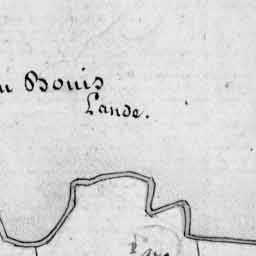 u Bouis
Lande.